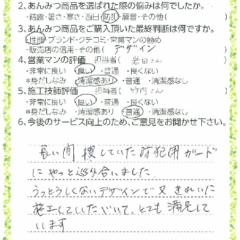 2.あんみつ商品を選ばれた際の悩みは何でしたか。
・結露・暑さ・寒さ・西日・防犯・騒音・その他( )
3.あんみつ商品をご購入頂いた最終判断は何ですか。
・性能・ブランド・クチコミ・営業マンの勧め
・販売店の信用・その他( デザイン )
4.営業マンの評価 担当者( 岩田さん )
・非常に良い・良い・普通・良くない
・身だしなみ(清潔感あり・普通・清潔感なし)
5.施工技術評価 担当者( さん )
・非常に良い・良い・普通・良くない
・身だしなみ(清潔感あり・普通・清潔感なし)
6.今後のサービス向上のため、ご意見をお聞かせ下さい。
長い間 捜していた 防犯用ガード
にやっと巡り合いました
うっとうしくないデザインで 又 きれいに
施工していただいて、とても満足して
います